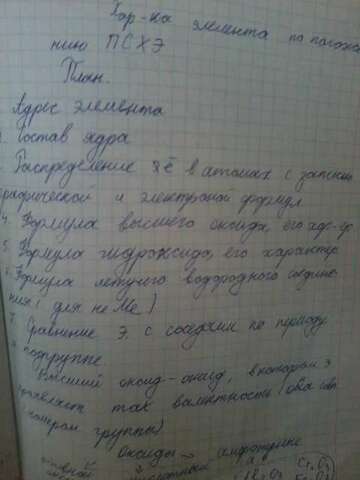 Хар-ка элемента по положе
нию ПСХЭ
План.
Адрес элемента
Состав ядра
Распределение ē в атомах с записью
графической и электронной формул
4. Формула высшего оксида, его хар-р
5. Формула гидроксида, его характер
6. Формула летучего водородного соедине
ния (для неМе)
7. Сравнение Э. с соседями по периоду
и подгруппе
Высший оксид - оксид, в котором Э
проявляет
валентность (она
номером группы)
Оксиды → амфотерные